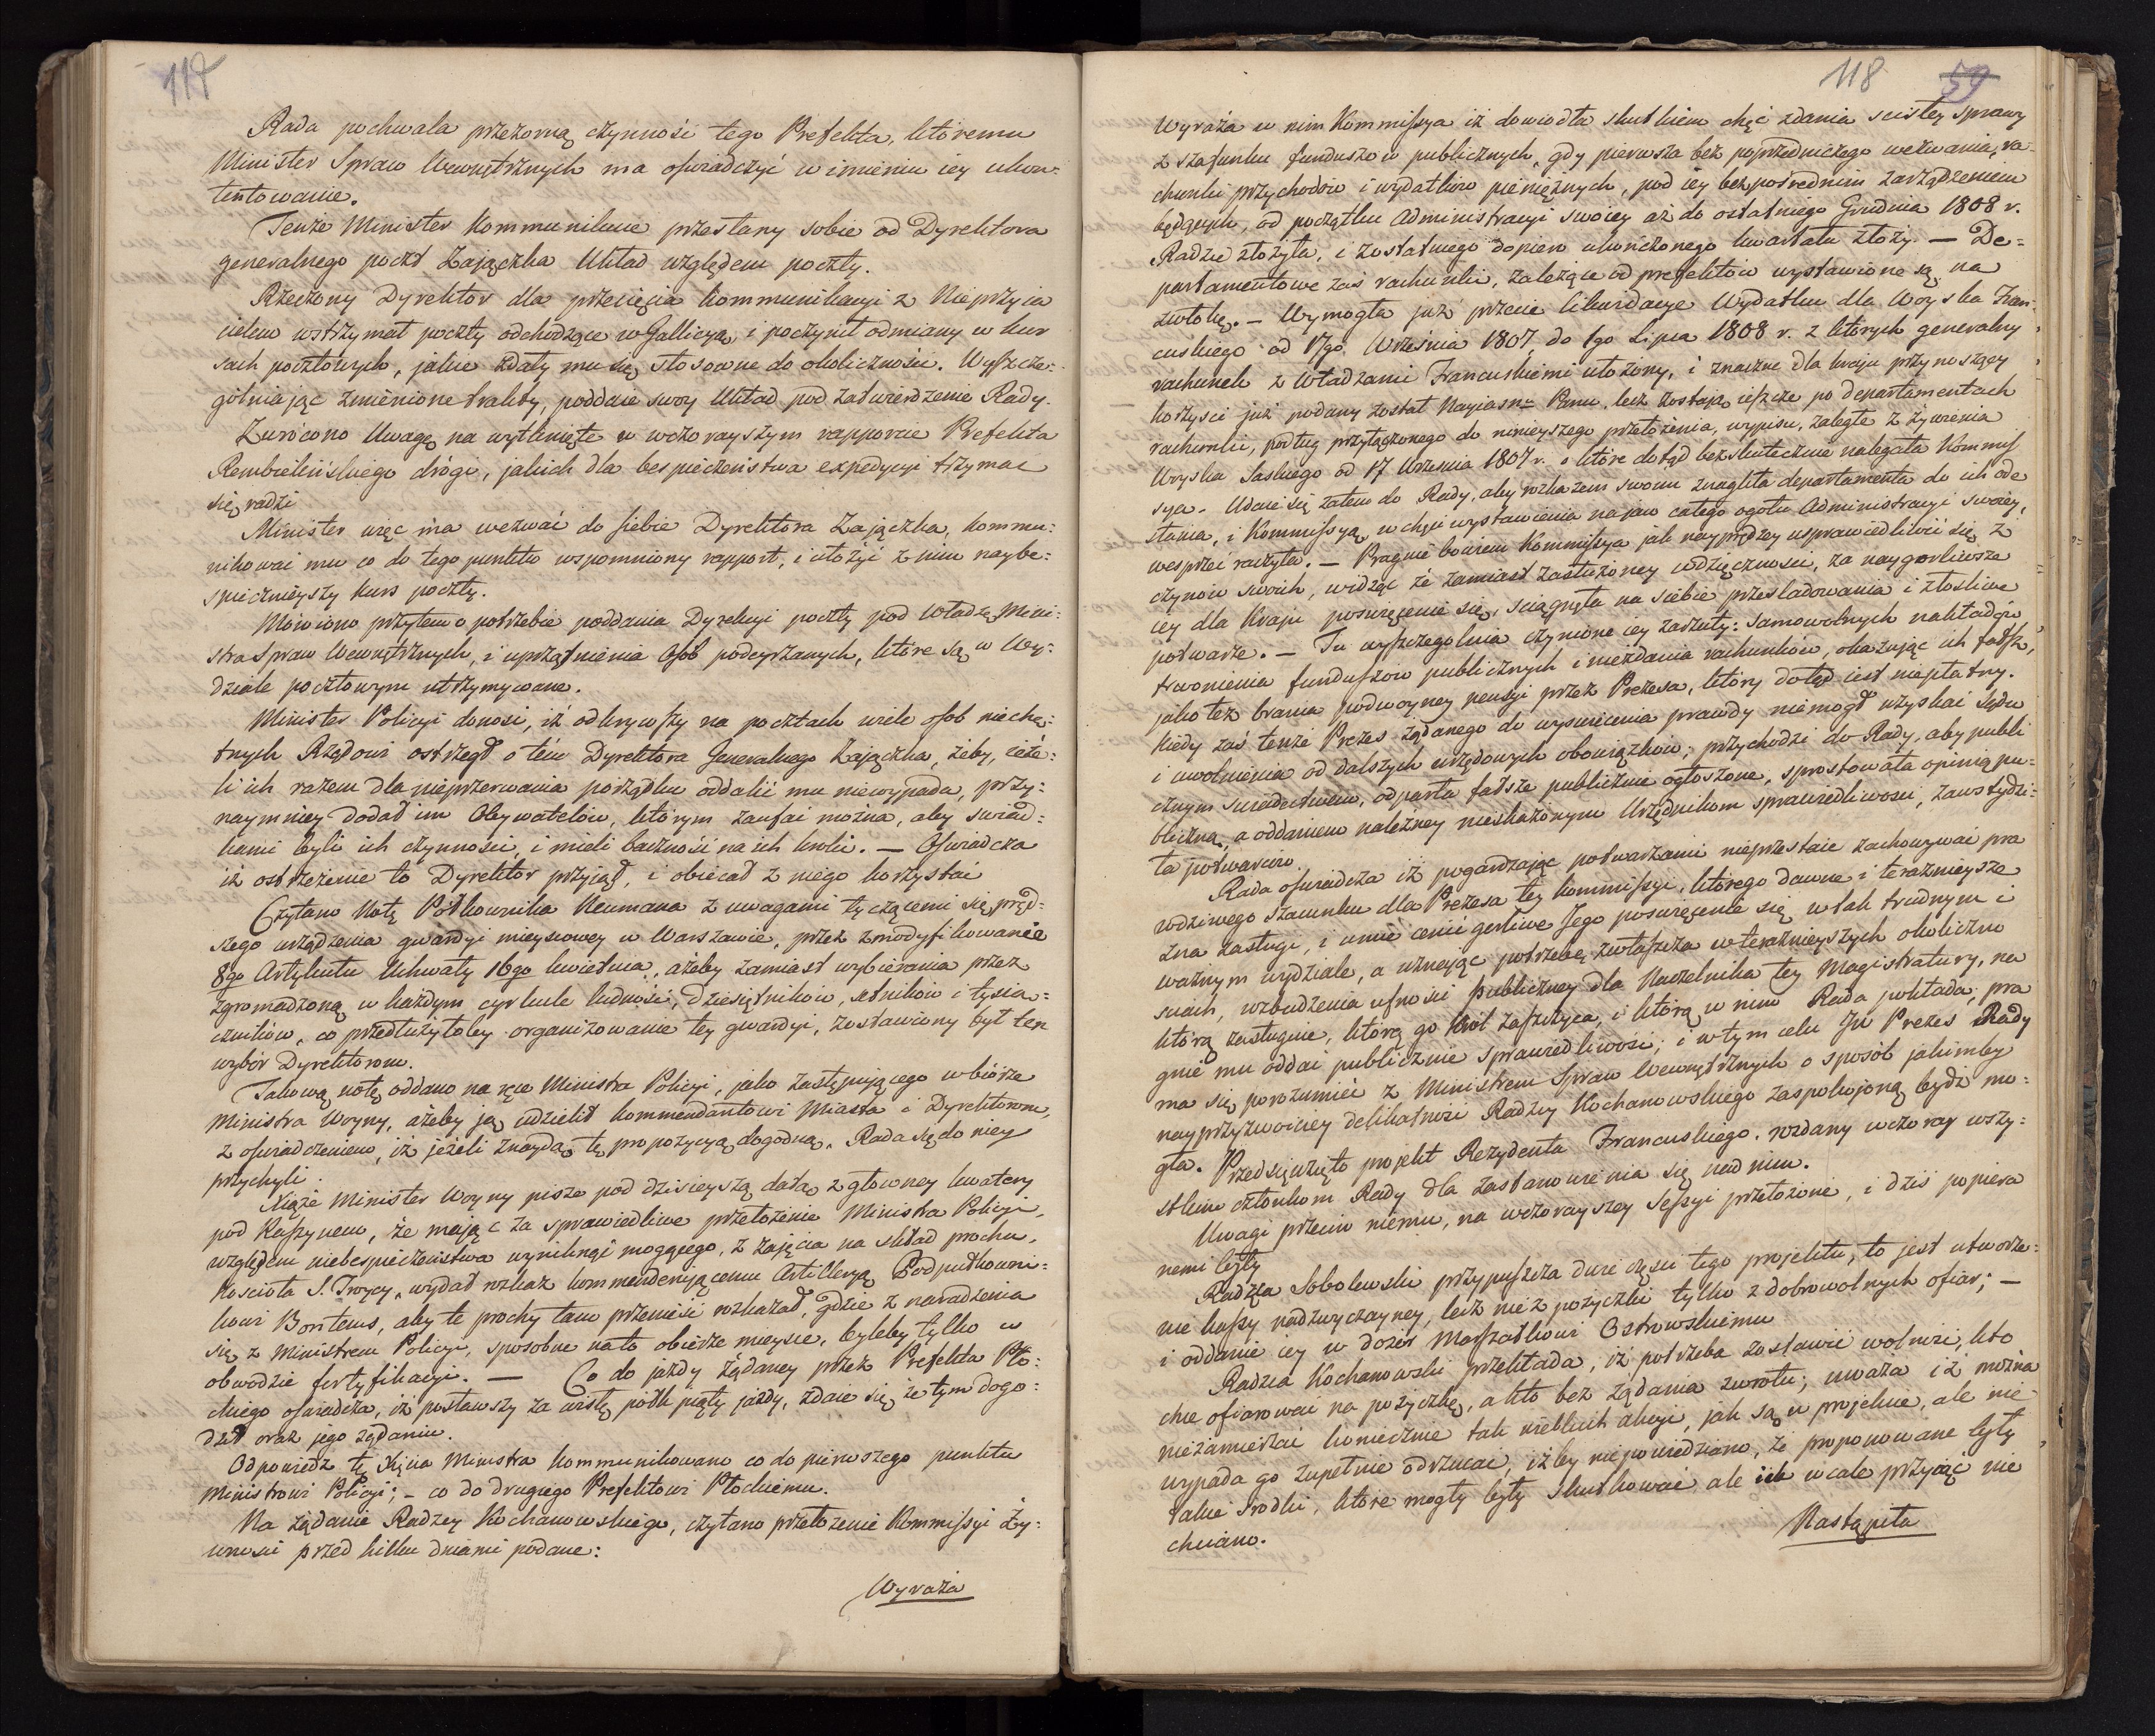 117
Rada pochwala przezorną czynność tego Prefekta, któremu
Minister Spraw Wewnętrznych ma oświadczyć w imieniu iey ukon=
tentowanie.
Tenże Minister kommunikuie przesłany sobie od Dyrektora
generalnego poczt Zaiączka Układ względem poczty.
Rzeczony Dyrektor dla przecięcia kommunikacyi z Nieprzyia
cielem wstrzymał poczty odchodzące w Gallicyą, i poczynił odmiany w kur
sach pocztowych, jakie zdały mu się stosowne do okoliczności. Wyszcze=
gólniaiąc zmienione trakty, poddaie swoy Układ pod zatwierdzenie Rady.
Zwrócono Uwagę na wytknięte w wczorayszym rapporcie Prefekta
Rembielińskiego drogi, jakich dla bespieczeństwa expedycyi trzymać
się radzi
Minister więc ma wezwać do siebie Dyrektora Zaiączka, kommu=
nikować mu co do tego punktu wspomniony rapport, i ułożyć z nim naybe=
spiecznieyszy kurs poczty.
Mówiono przytem o potrzebie poddania Dyrekcyi poczty pod władzę Mini=
stra Spraw Wewnętrznych, i uprzątnienia Osób podeyrzanych, które są w Wy=
dziale pocztowym utrzymywane.
Minister Policyi donosi, iż odkrywszy na pocztach wiele osob niechę=
tnych Rządowi ostrzegł o tém Dyrektora Generalnego Zaiączka, żeby, ieże=
li ich razem dla nieprzerwania porządku oddalić mu niewypada, przy=
naymniey dodał im Obywatelów, którym zaufać można, aby świad=
kami byli ich czynności, i mieli baczność na ich kroki. — Oświadcza
iż ostrzeżenie to Dyrektor przyiął, i obiecał z niego korzystać
Czytano Notę Półkownika Neumana z uwagami tyczącemi się pręd=
szego urządzenia gwardyi mieyscowey w Warszawie, przez zmodyfikowanie
8go Artykułu Uchwały 16go kwietnia, ażeby zamiast wybierania przez
zgromadzoną w każdym cyrkule ludność, dziesiętników, setników i tysią=
czników, co przedłużyłoby organizowanie tey gwardyi, zostawiony był ten
wybór Dyrektorom.
Takową notę oddano na ręce Ministra Policyi, jako zastępuiącego w biórze
Ministra Woyny, ażeby ją udzielił kommendantowi Miasta i Dyrektorom,
z oświadczeniem, iż jeżeli znaydą tę propozycyą dogodną, Rada się do niey
przychyli.
Xiąże Minister Woyny pisze pod dzisieyszą datą z głowney kwatery
pod Raszynem, że maiąc za sprawiedliwe przełożenie Ministra Policyi,
względem niebespieczeństwa wyniknąć mogącego, z zaięcia na skład prochu,
Kościoła S. Tróycy, wydał rozkaz kommenderuiącemu Artilleryą Podpułkowni=
kowi Bontems, aby te prochy tam przenieść rozkazał, gdzie z naradzenia
się z Ministrem Policyi, sposobne na to obierze mieysce, byleby tylko w
obwodzie fortyfikacyi. — Co do jazdy żądaney przez Prefekta Pło=
ckiego oświadcza, iż postawszy za wisłę półk piąty jazdy, zdaie się że tym dogo=
dził oraz jego żądaniu.
Odpowiedź tę Xięcia Ministra kommunikowano co do pierwszego punktu
Ministrowi Policyi; – co do drugiego Prefektowi Płockiemu.
Na żądanie Radzcy Kochanowskiego, czytano przełożenie Kommissyi Ży=
wności przed kilku dniami podane:
Wyraża
118 59
Wyraża w nim Kommissya iż dowiodła skutkiem chęć zdania scisłey sprawy
z szafunku funduszow publicznych, gdy pierwsza bez poprzedniczego wezwania, ra=
chunki przychodów i wydatków pieniężnych, pod iey bezpośrednim zarządzeniem
będących, od początku Administracyi swoiey aż do ostatniego Grudnia 1808 r.
Radzie złożyła, i z ostatniego dopiero ukończonego kwartału złoży. — De=
partamentowe zaś rachunki, zależące od prefektów wystawione są na
zwłokę. — Wymogła już przecie likwidacye Wydatku dla Woyska Fran=
cuskiego od 17go Września 1807 do 1go Lipca 1808 r. z których generalny
rachunek z Władzami Francuskiemi ułożony, i znaczne dla kraju przynoszący
korzyści już podany został Nayiasn: Panu, lecz zostaią ieszcze po departamentach
rachunki, podług przyłączonego do ninieyszego przełożenia, wypisu, zaległe z żywienia
Woyska Saskiego od 17 Września 1807 r. o które dotąd bezskutecznie nalegała Kommis
sya. Udaie się zatem do Rady, aby rozkazem swoim znagliła departamenta do ich ode
słania, i Kommissyą w chęci wystawienia na jaw całego ogółu Administracyi swoiey,
wesprzeć raczyła. — Pragnie bowiem Kommissya jak nayprędzey usprawiedliwić się z
czynów swoich, widząc że zamiast zasłużoney wdzięczności, za naygorliwsze
iey dla Kraju poswięcenie się, sciągnęła na siebie przesladowania i złosliwe
potwarze. — Tu wyszczegolnia czynione iey zarzuty: samowolnych nakładów,
trwonienia funduszow publicznych i niezdania rachunków, okazując ich fałsz,
jako też brania podwoyney pensyi przez Prezesa, który dotąd iest niepłatny.
Kiedy zaś tenże Prezes żądanego do wyswiecenia prawdy niemogł uzyskać sądu
i uwolnienia od dalszych urzędowych obowiązków; przychodzi do Rady, aby publi
cznym swiadectwem, odparła fałsze publicznie ogłoszone, sprostowała opinią pu=
bliczną, a oddaniem należney nieskażonym Urzędnikom sprawiedliwości, zawstydzi=
ła potwarców.
Rada oświadcza iż pogardzaiąc potwarzami nieprzestaie zachowywać pra
wdziwego szacunku dla Prezesa tey kommissyi, którego dawne i terazniejsze
zna zasługi, i umie cenić gorliwe Jego poswięcenie się w tak trudnym i
ważnym wydziale, a uznaiąc potrzebę, zwłaszcza w teraznieyszych okoliczno
sciach, wzbudzenia ufności publiczney dla Naczelnika tey Magistratury, na
którą zasługuie, którą go Król zaszczyca, i którą w nim Rada pokłada; pra
gnie mu oddać publicznie sprawiedliwość; i w tym celu JW Prezes Rady
ma się porozumieć z Ministrem Spraw Wewnętrznych o sposób jakimby
nayprzyzwoiciey delikatność Radzcy Kochanowskiego zaspokojoną bydź mo=
gła. Przedsięwzięto projekt Rezydenta Francuskiego, rozdany wczoray wszy=
stkim członkom Rady dla zastanowienia się nad nim.
Uwagi przeciw niemu, na wczorayszey Sessyi przełożone, i dziś popiera
nemi były
Radzca Sobolewski przypuszcza dwie części tego projektu, to jest utworze=
nie kassy nadzwyczayney, lecz nie z pożyczki tylko z dobrowolnych ofiar; —
i oddanie iey w dozór Marszałkowi Ostrowskiemu
Radzca Kochanowski przekłada, iż potrzeba zostawić wolność, kto
chce ofiarować na pożyczkę, a kto bez żądania zwrotu; uważa iż można
niezamierzać koniecznie tak wielkich akcyi, jak są w projekcie, ale nie
wypada go zupełnie odrzucać, iżby niepowiedziano, że proponowane były
takie srodki, które mogły były skutkować ale ich wcale przyiąć nie
chciano.
Nastąpiła